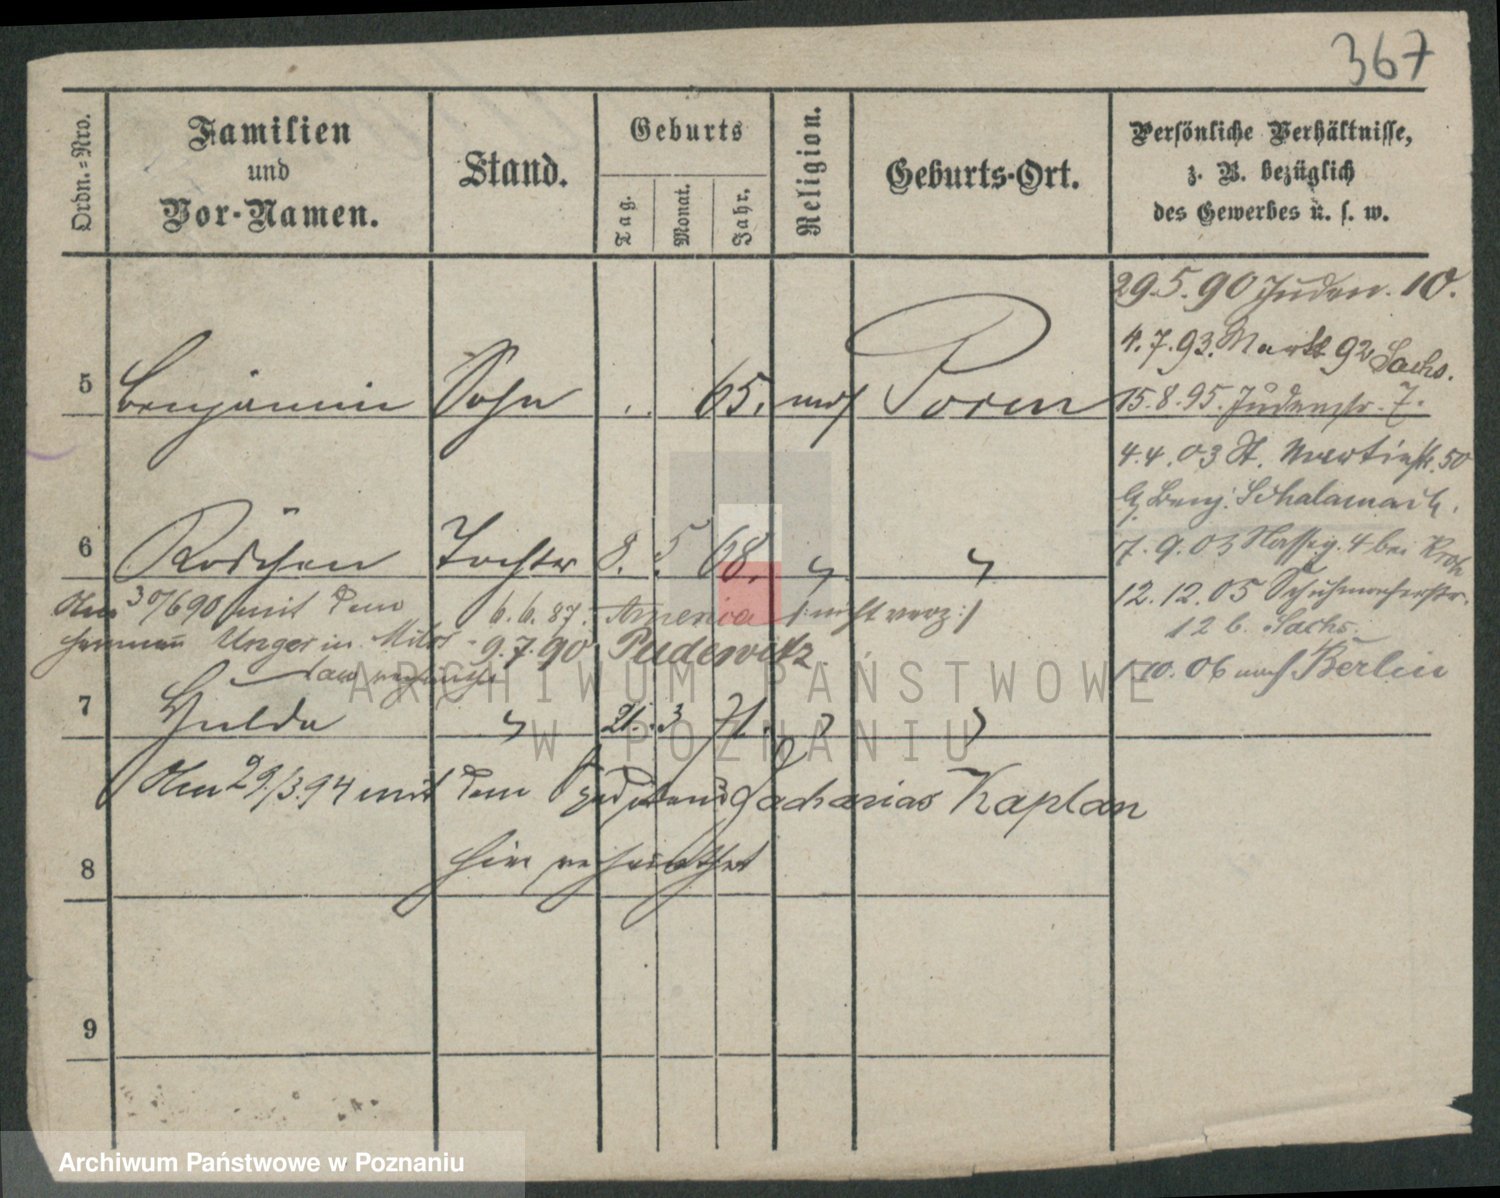 367
Ordn.-Nro.
Familien
und
Vor-Namen.
Stand.
Geburts
Tag.
Monat.
Jahr.
Religion.
Geburts-Ort.
Persönliche Verhältnisse,
z. B. bezüglich
des Gewerbes u. s. w.
29.5.90 Juden. 10.
4.7.93. Markt 92 Sachs.
5 Benjamin Sohn 65. mos Posen
15.8.95. Judenstr. 7.
4.4.03 St. Martinstr. 50
b/ Benj. Schalamach.
6 Röschen Tochter 8. 5. 68. " "
7.9.03 4 bei
12.12.05 Schuhmacherstr.
12 b. Sachs.
1.10.06 nach Berlin
Am 30/6 90 mit dem 6.6.87. America /:nicht verz:/
Hermann Unger in 9.7.90 Pudewitz
7 Hulda " 21. 3 71. " "
Am 29/3.94 mit dem Zacharias Kaplan
8 hier verheirathet
9
ARCHIWUM PAŃSTWOWE
W POZNANIU
Archiwum Państwowe w Poznaniu